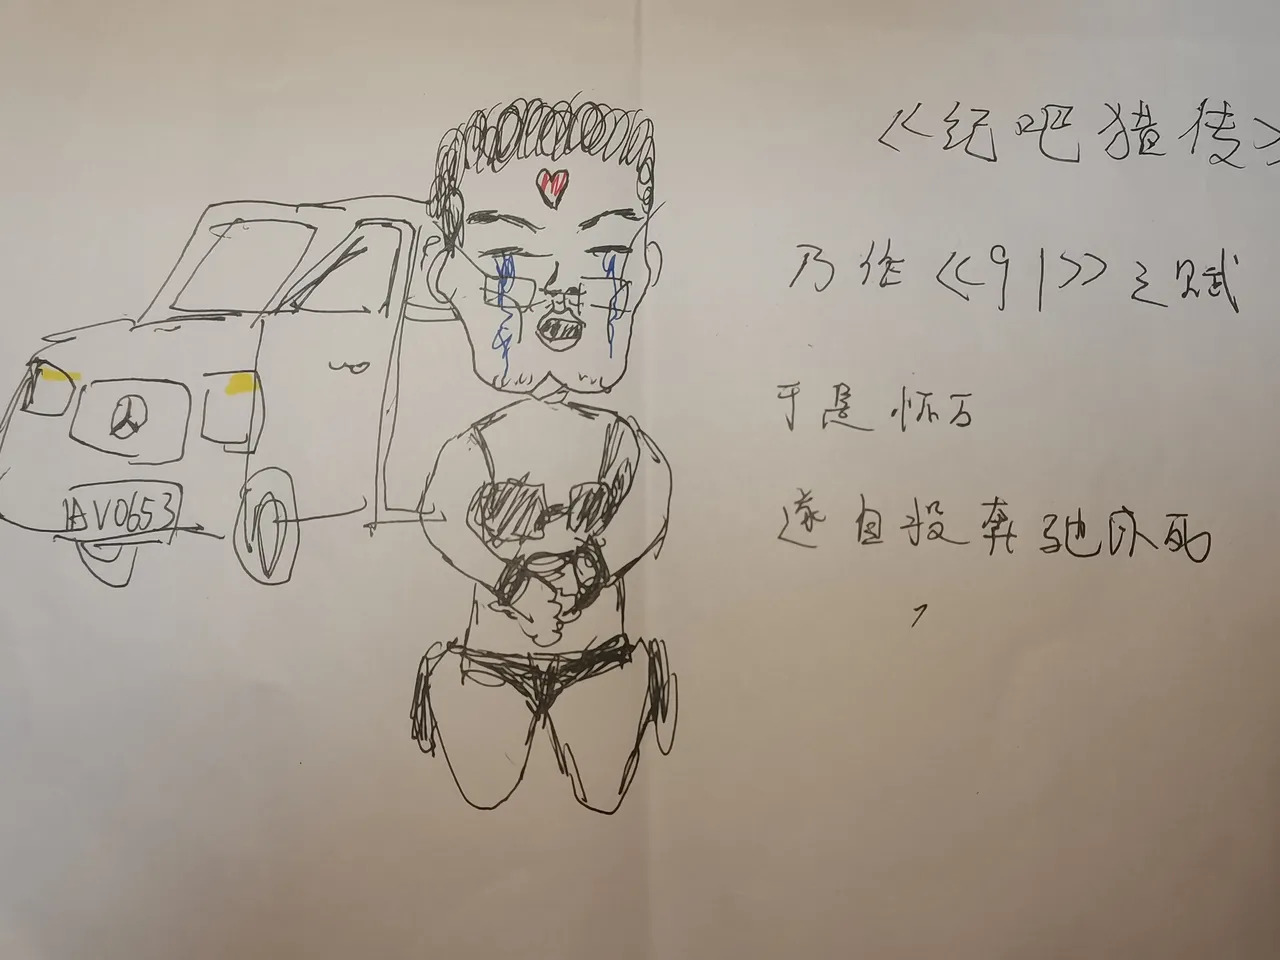 《纪吧猪传》
乃作《91》之赋
于是怀万
遂自投奔驰以死
AV0653